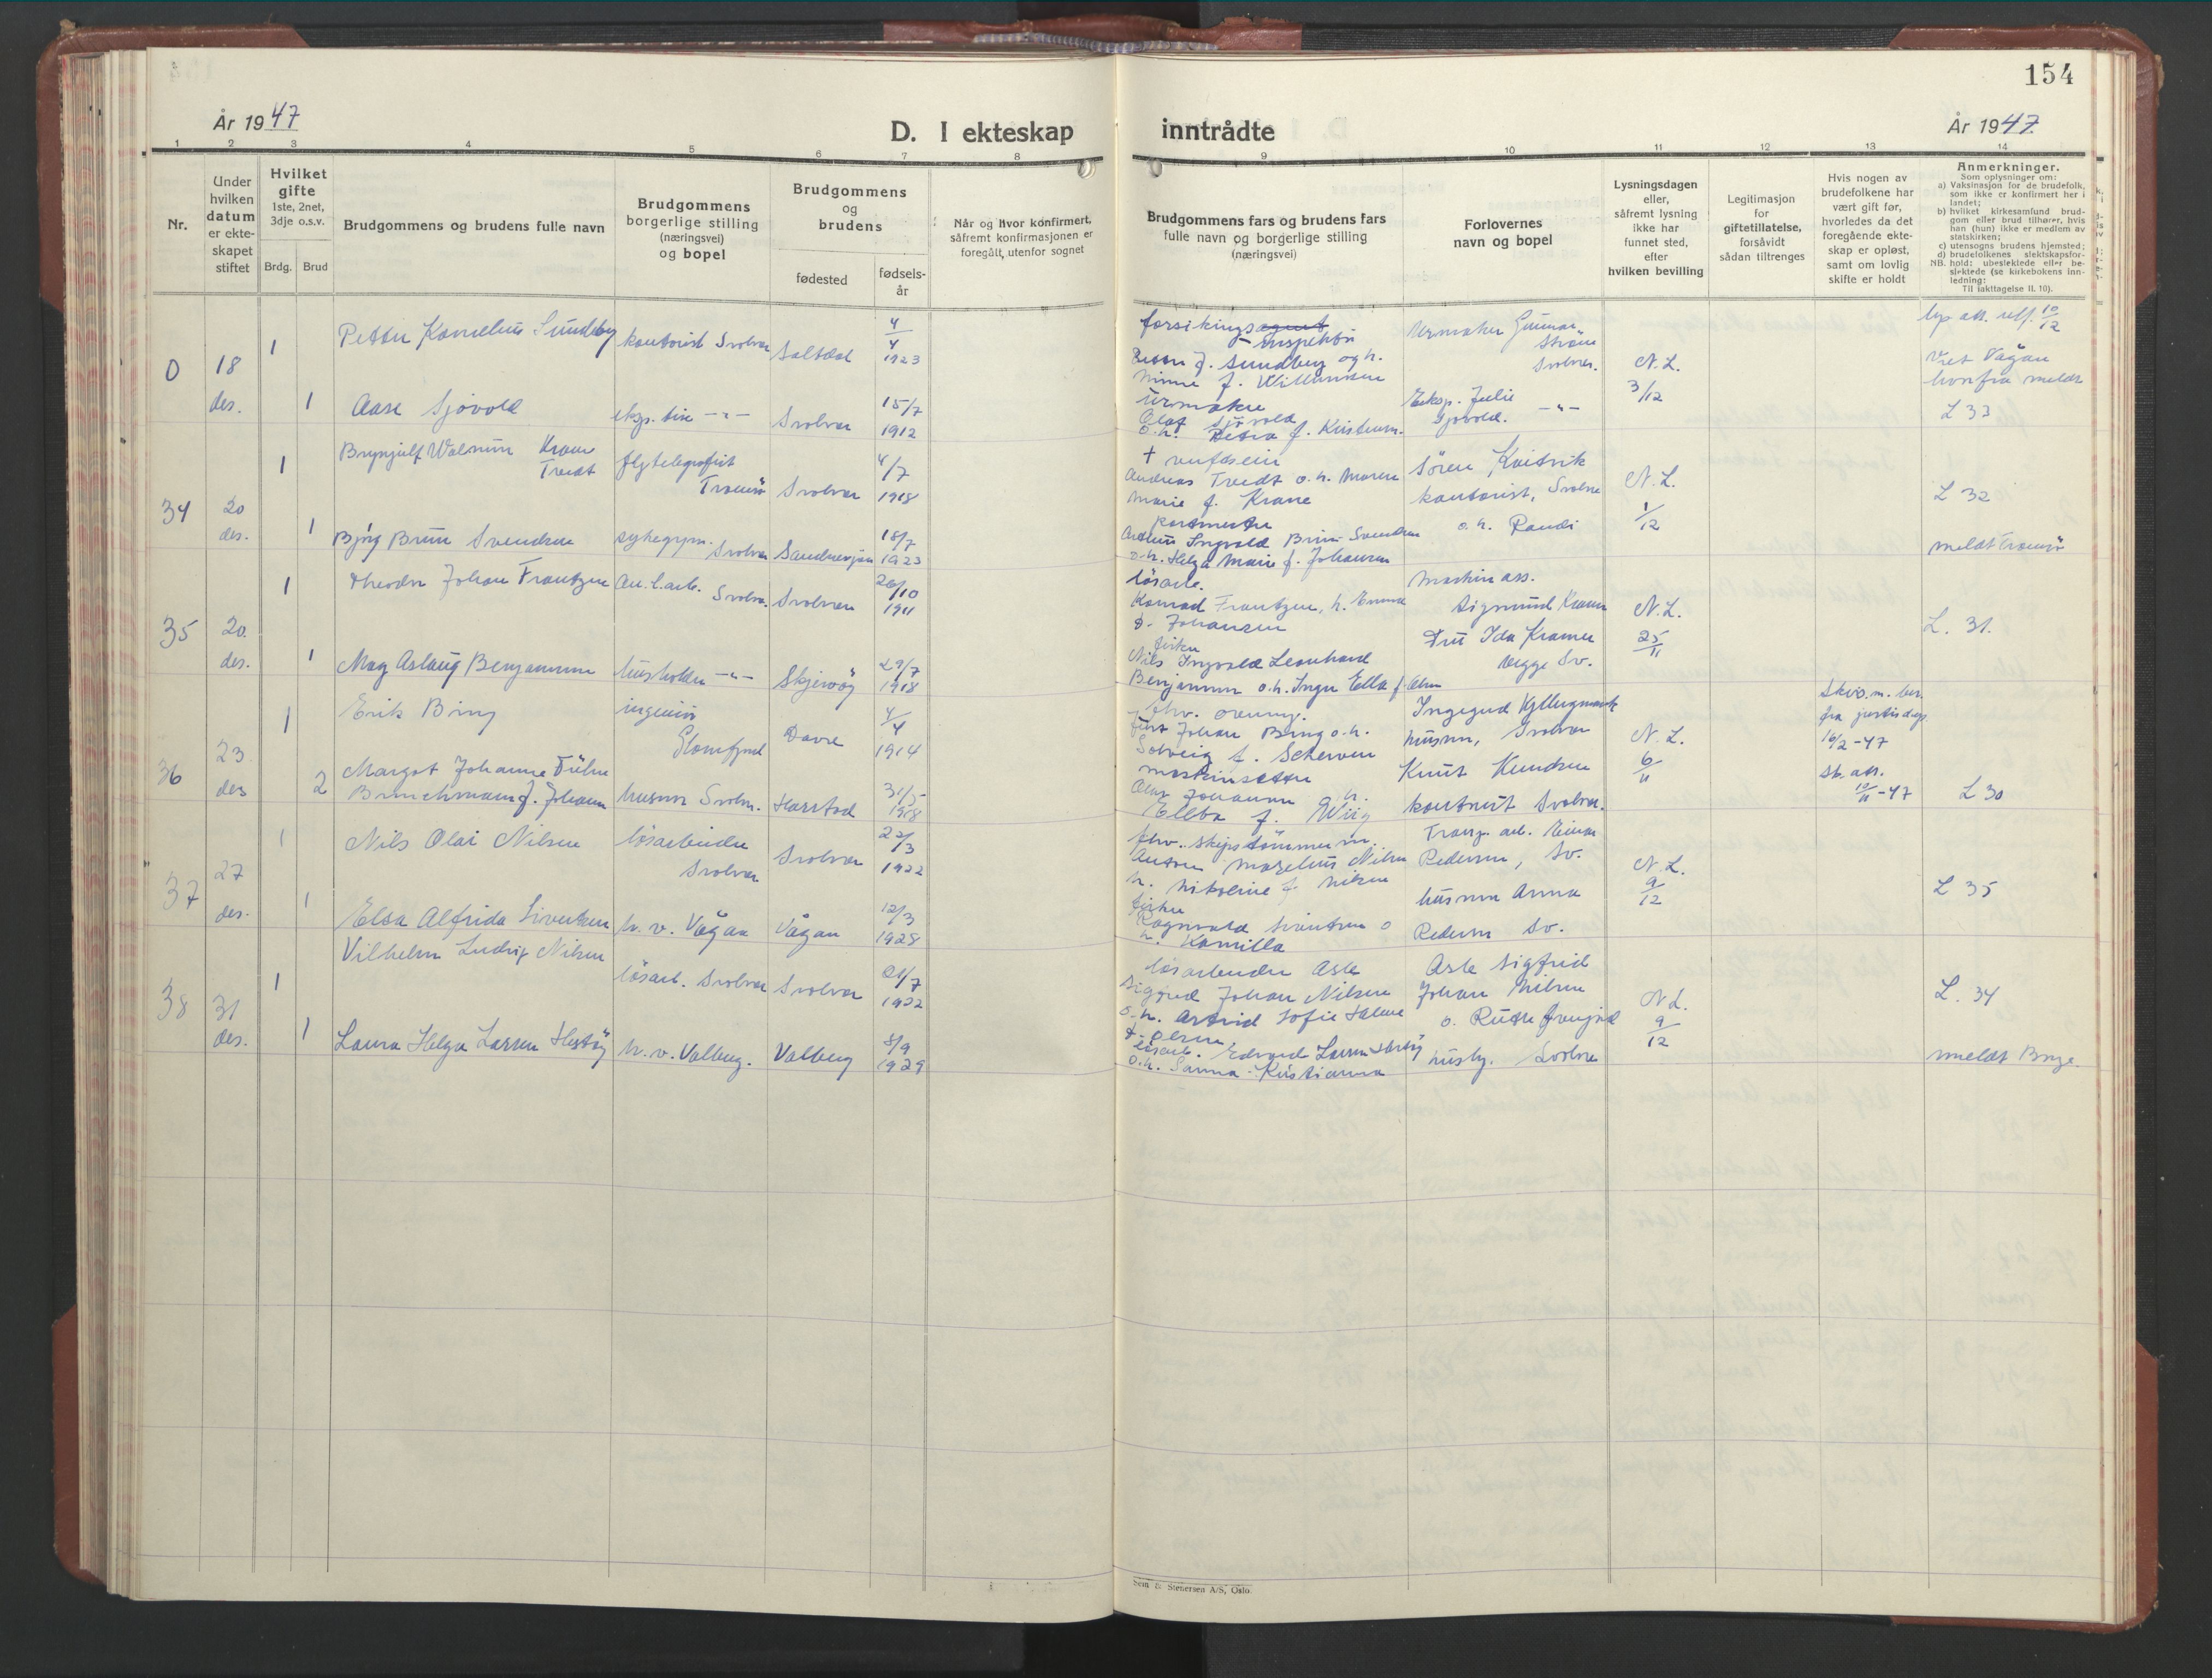 154
År 1947
D. I ekteskap inntrådte
År 1947
1 2 3 4 5 6 7 8 9 10 11 12 13 14
Nr.
Under
hvilken
datum
er ekte-
skapet
stiftet
Hvilket
gifte
1ste, 2net,
3dje o.s.v.
Brdg. Brud
Brudgommens og brudens fulle navn
Brudgommens
borgerlige stilling
(næringsvei)
og bopel
Brudgommens
og
brudens
fødested
fødsels-
år
Når og hvor konfirmert,
såfremt konfirmasjonen er
foregått utenfor sognet
Brudgommens fars og brudens fars
fulle navn og borgerlige stilling
(næringsvei)
Forlovernes
navn og bopel
Lysningsdagen
eller,
såfremt lysning
ikke har
funnet sted,
efter
hvilken bevilling
Legitimasjon
for
giftetillatelse,
forsåvidt
sådan tiltrenges
Hvis nogen av
brudefolkene har
vært gift før,
hvorledes da det
foregående ekte-
skap er opløst,
samt om lovlig
skifte er holdt
Anmerkninger.
Som oplysninger om:
a) Vaksinasjon for de brudefolk,
som ikke er konfirmert her i
landet;
b) hvilket kirkesamfund brud-
gom eller brud tilhører, hvis
han (hun) ikke er medlem av
statskirken;
c) utensogns brudens hjemsted;
d) brudefolkenes slektskapsfor-
NB. hold: ubeslektede eller be-
slektede (se kirkebokens inn-
ledning:
Til iakttagelse II. 10).
0
18
des.
1
Petter Kornelius Sundby
kontorist Svolvær
Saltdal
4/4
1923
forsikringsagent
- inspektør
Petter J. Sundberg og h.
Minne f. Willumsen
Urmaker Gunnar
Strøm
Svolvær.
N. L.
3/12
10/12
Viet Vågan
hvorfra meldt
L 33
1
Aase Sjøvold
eksp. -"-
Svolvær
15/7
1912
Urmaker
Olaf Sjøvold
o. h. Petra f. Kristensen.
Eksp. Julie
Sjøvold. -"-
34
20
des.
1
Brynjulf Walnum Krane
Tvedt
flytelegrafist
Tromsø
Svolvær
4/7
1918
+
Andreas Tvedt o. h. Maren
Marie f. Krane
Søren Kvitvik
kontorist, Svolvær
o. h. Randi
N. L.
1/12
L 32
1
Bjørg Brun Svendsen
sykegym. Svolvær
Sandnessjøen
18/7
1923
postmester
Ingvald Brun Svendsen
o. h. Helga Marie f. Johansen
meldt Tromsø
35
20.
des.
1
Theodor Johan Frantzen
an. l. arb. Svolv.
Svolvær
26/10
1911
løsarb.
Konrad Frantzen, h. Emma
f. Johansen
Maskin ass.
Sigmund Kramer
Fru Ida Kramer
begge Sv.
N. L.
25/11
L. 31.
1
May Aslaug Benjaminsen
husholder -"-
Skjervøy
29/7
1918
fisker
Nils Ingvald Leonhard
Benjaminsen o. h. Inger Ella f. Olsen
36
23.
des
1
Erik Bing
ingeniør
Glomfjord
Dovre
4/4
1914
Johan Bing o. h.
Solveig f. Scherven
husm, Svolvær
N. L.
6/11
fra justisdep.
16/2-47
sk. att.
10/11-47
L 30
2
Margot Johanne
Brinchmann f. Johansen
husmor Svolv.
Harstad
31/5-
1918
maskinsetter
Olav Johansen o. h.
Ebba f. Wiig
Knut Knudsen
kontorist Svolvær.
37
27
des.
1
Nils Olai Nilsen
løsarbeider
Svolvær
Svolvær
22/3
1922
fhv. skipstømmerm.
Anton Marelius Nilsen
h. Nikoline f. Nilsen
Transp. arb. Einar
Pedersen, Sv.
N. L.
9/12
L 35
1
Elsa Alfrida Sivertsen
h. v. Vågan
Vågan
12/3
1928
fisker
Ragnvald Sivertsen o
h. Kamilla
husmor Anna
Pedersen Sv.
38
31
des.
1
Vilhelm Ludvig Nilsen
løsarb. Svolvær
Svolvær
21/7
1922
løsarbeider Asle
Sigfred Johan Nilsen
o. h. Astrid Sofie Halene
f. Olsen.
Asle Sigfrid
Johan Nilsen
N. L.
9/12
L. 34
1
Laura Helga Larsen Hestøy
h. v. Valberg.
Valberg
8/9
1929
løsarb. Edvard Larsen Hestøy
o. h. Sanna Kristianna
husby. Svolvær
Sem & Stenersen A/S, Oslo.